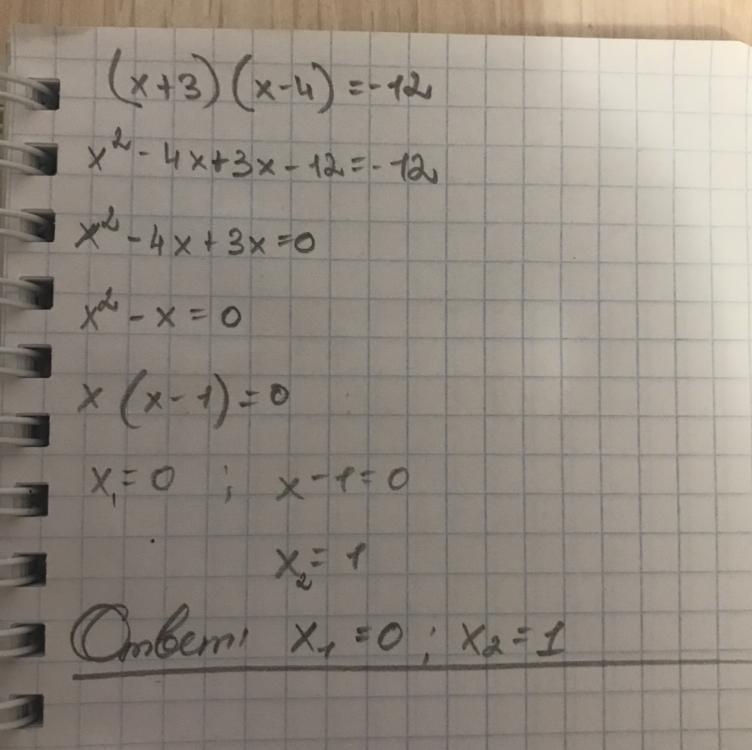 (x+3)(x-4)=-12
x²-4x+3x-12=-12
x²-4x+3x=0
x²-x=0
x(x-1)=0
x₁=0 ; x-1=0
x₂=1
Ответ: x₁=0; x₂=1